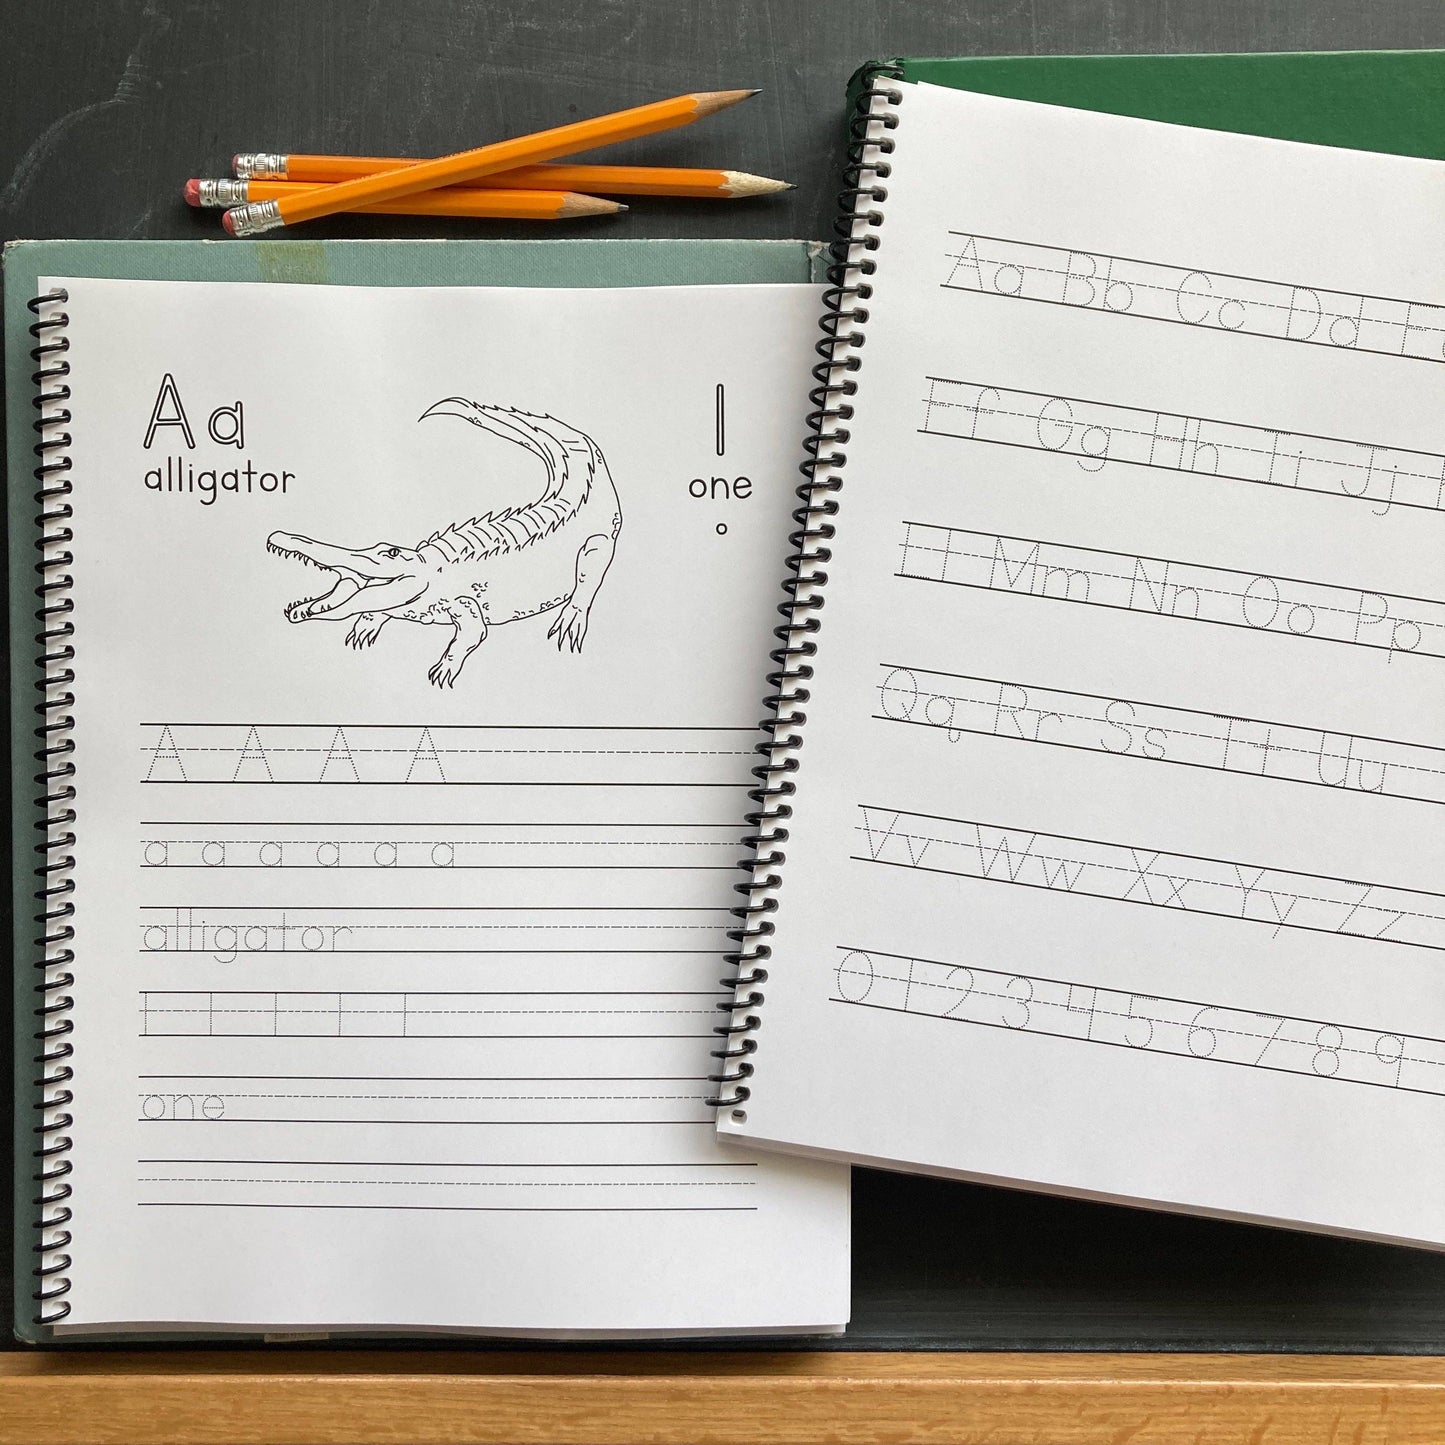 Aa
alligator
1
one
A A A A
a a a a a a
alligator
1 1 1 1 1
one
Aa Bb Cc Dd E
Ff Gg Hh Ii Jj
Ll Mm Nn Oo Pp
Qq Rr Ss Tt Uu
Vv Ww Xx Yy Zz
0 1 2 3 4 5 6 7 8 9